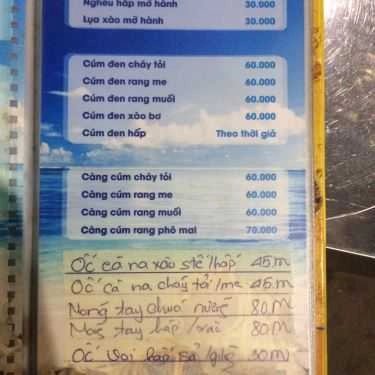 Nghêu hấp mỡ hành 30.000
Lụa xào mỡ hành 30.000
Cúm đen cháy tỏi 60.000
Cúm đen rang me 60.000
Cúm đen rang muối 60.000
Cúm đen xào bơ 60.000
Cúm đen hấp Theo thời giá
Càng cúm cháy tỏi 60.000
Càng cúm rang me 60.000
Càng cúm rang muối 60.000
Càng cúm rang phô mai 70.000
Ốc cà na xào stế/hấp 45m
Ốc cà na cháy tỏi/me 45m
Móng tay chúa nướng 80m
Móng tay hấp/xào 80m
Ốc Voi hấp sả/ 30m